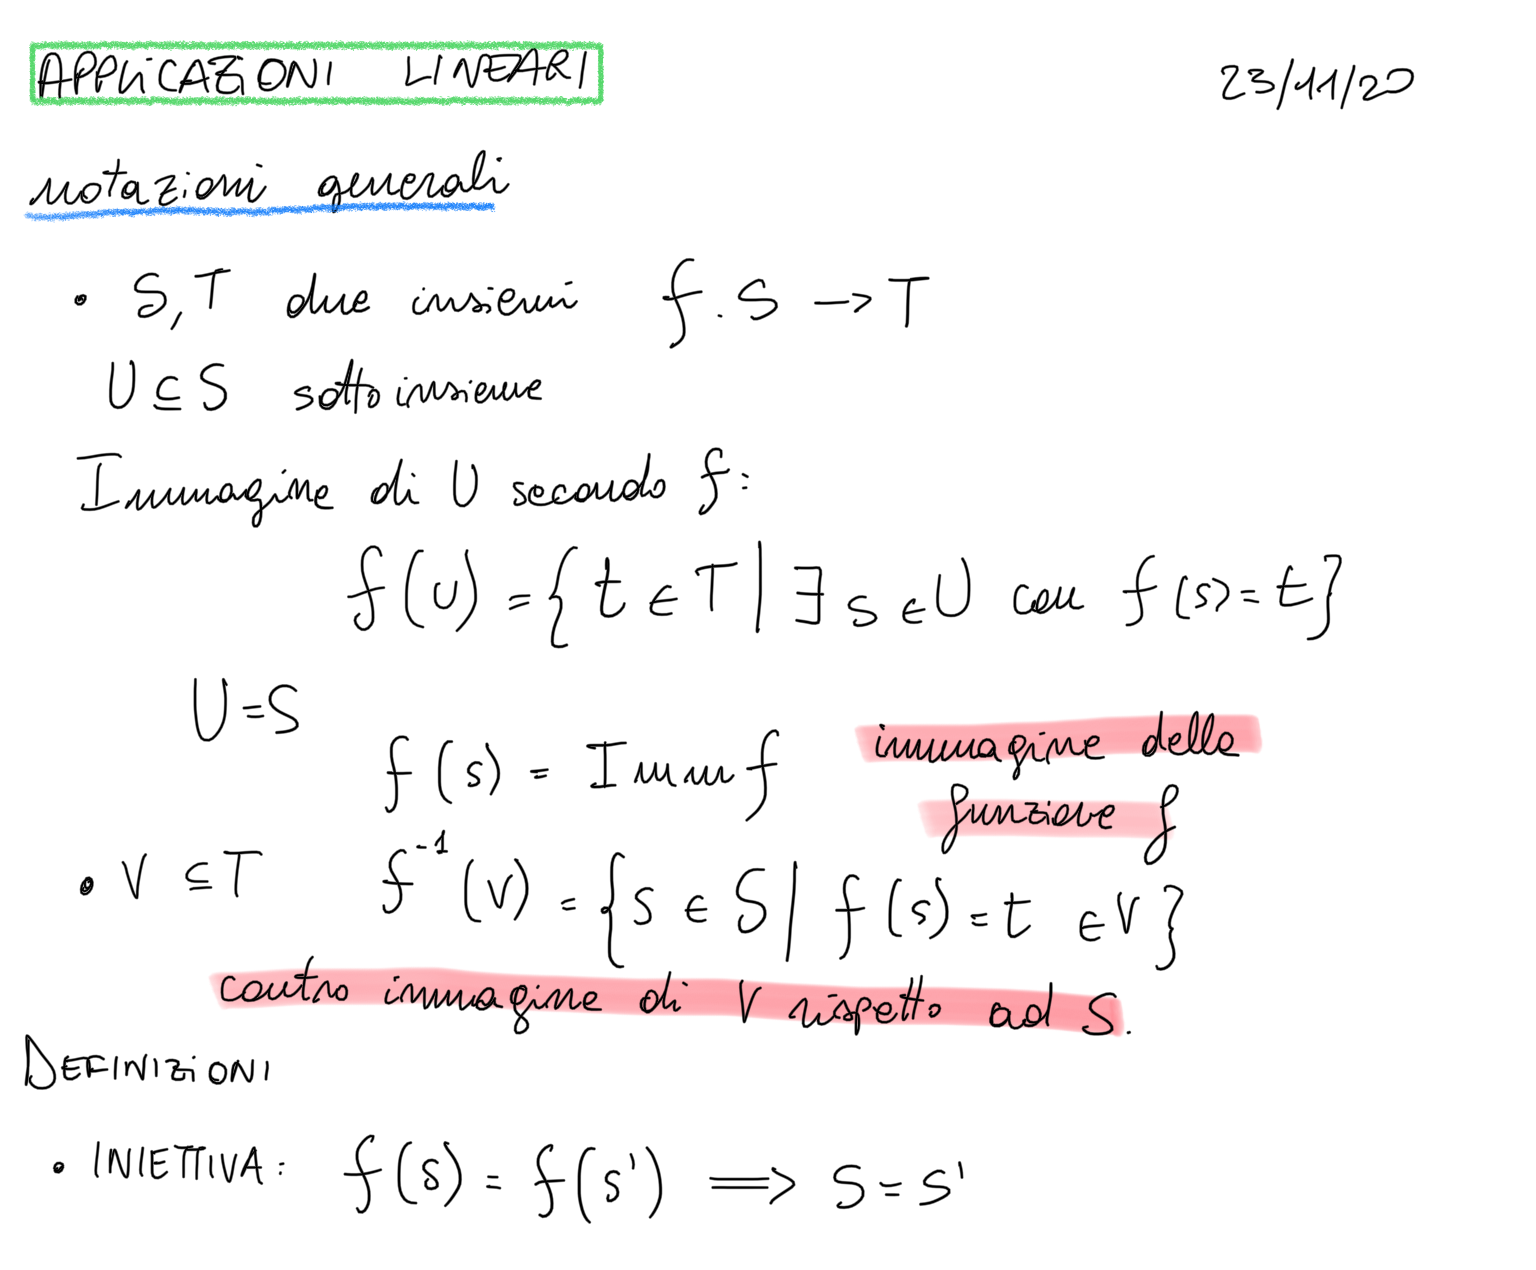 APPLICAZIONI LINEARI 23/11/20
notazioni generali
• S, T due insiemi f: S → T
U ⊆ S sottoinsieme
Immagine di U secondo f:
f(U) = { t ∈ T | ∃ s ∈ U con f(s) = t }
U = S
f(s) = Imm f immagine della
funzione f
• V ⊆ T f⁻¹(V) = { s ∈ S | f(s) = t ∈ V }
contro immagine di V rispetto ad S.
DEFINIZIONI
• INIETTIVA: f(s) = f(s') ⟹ s = s'